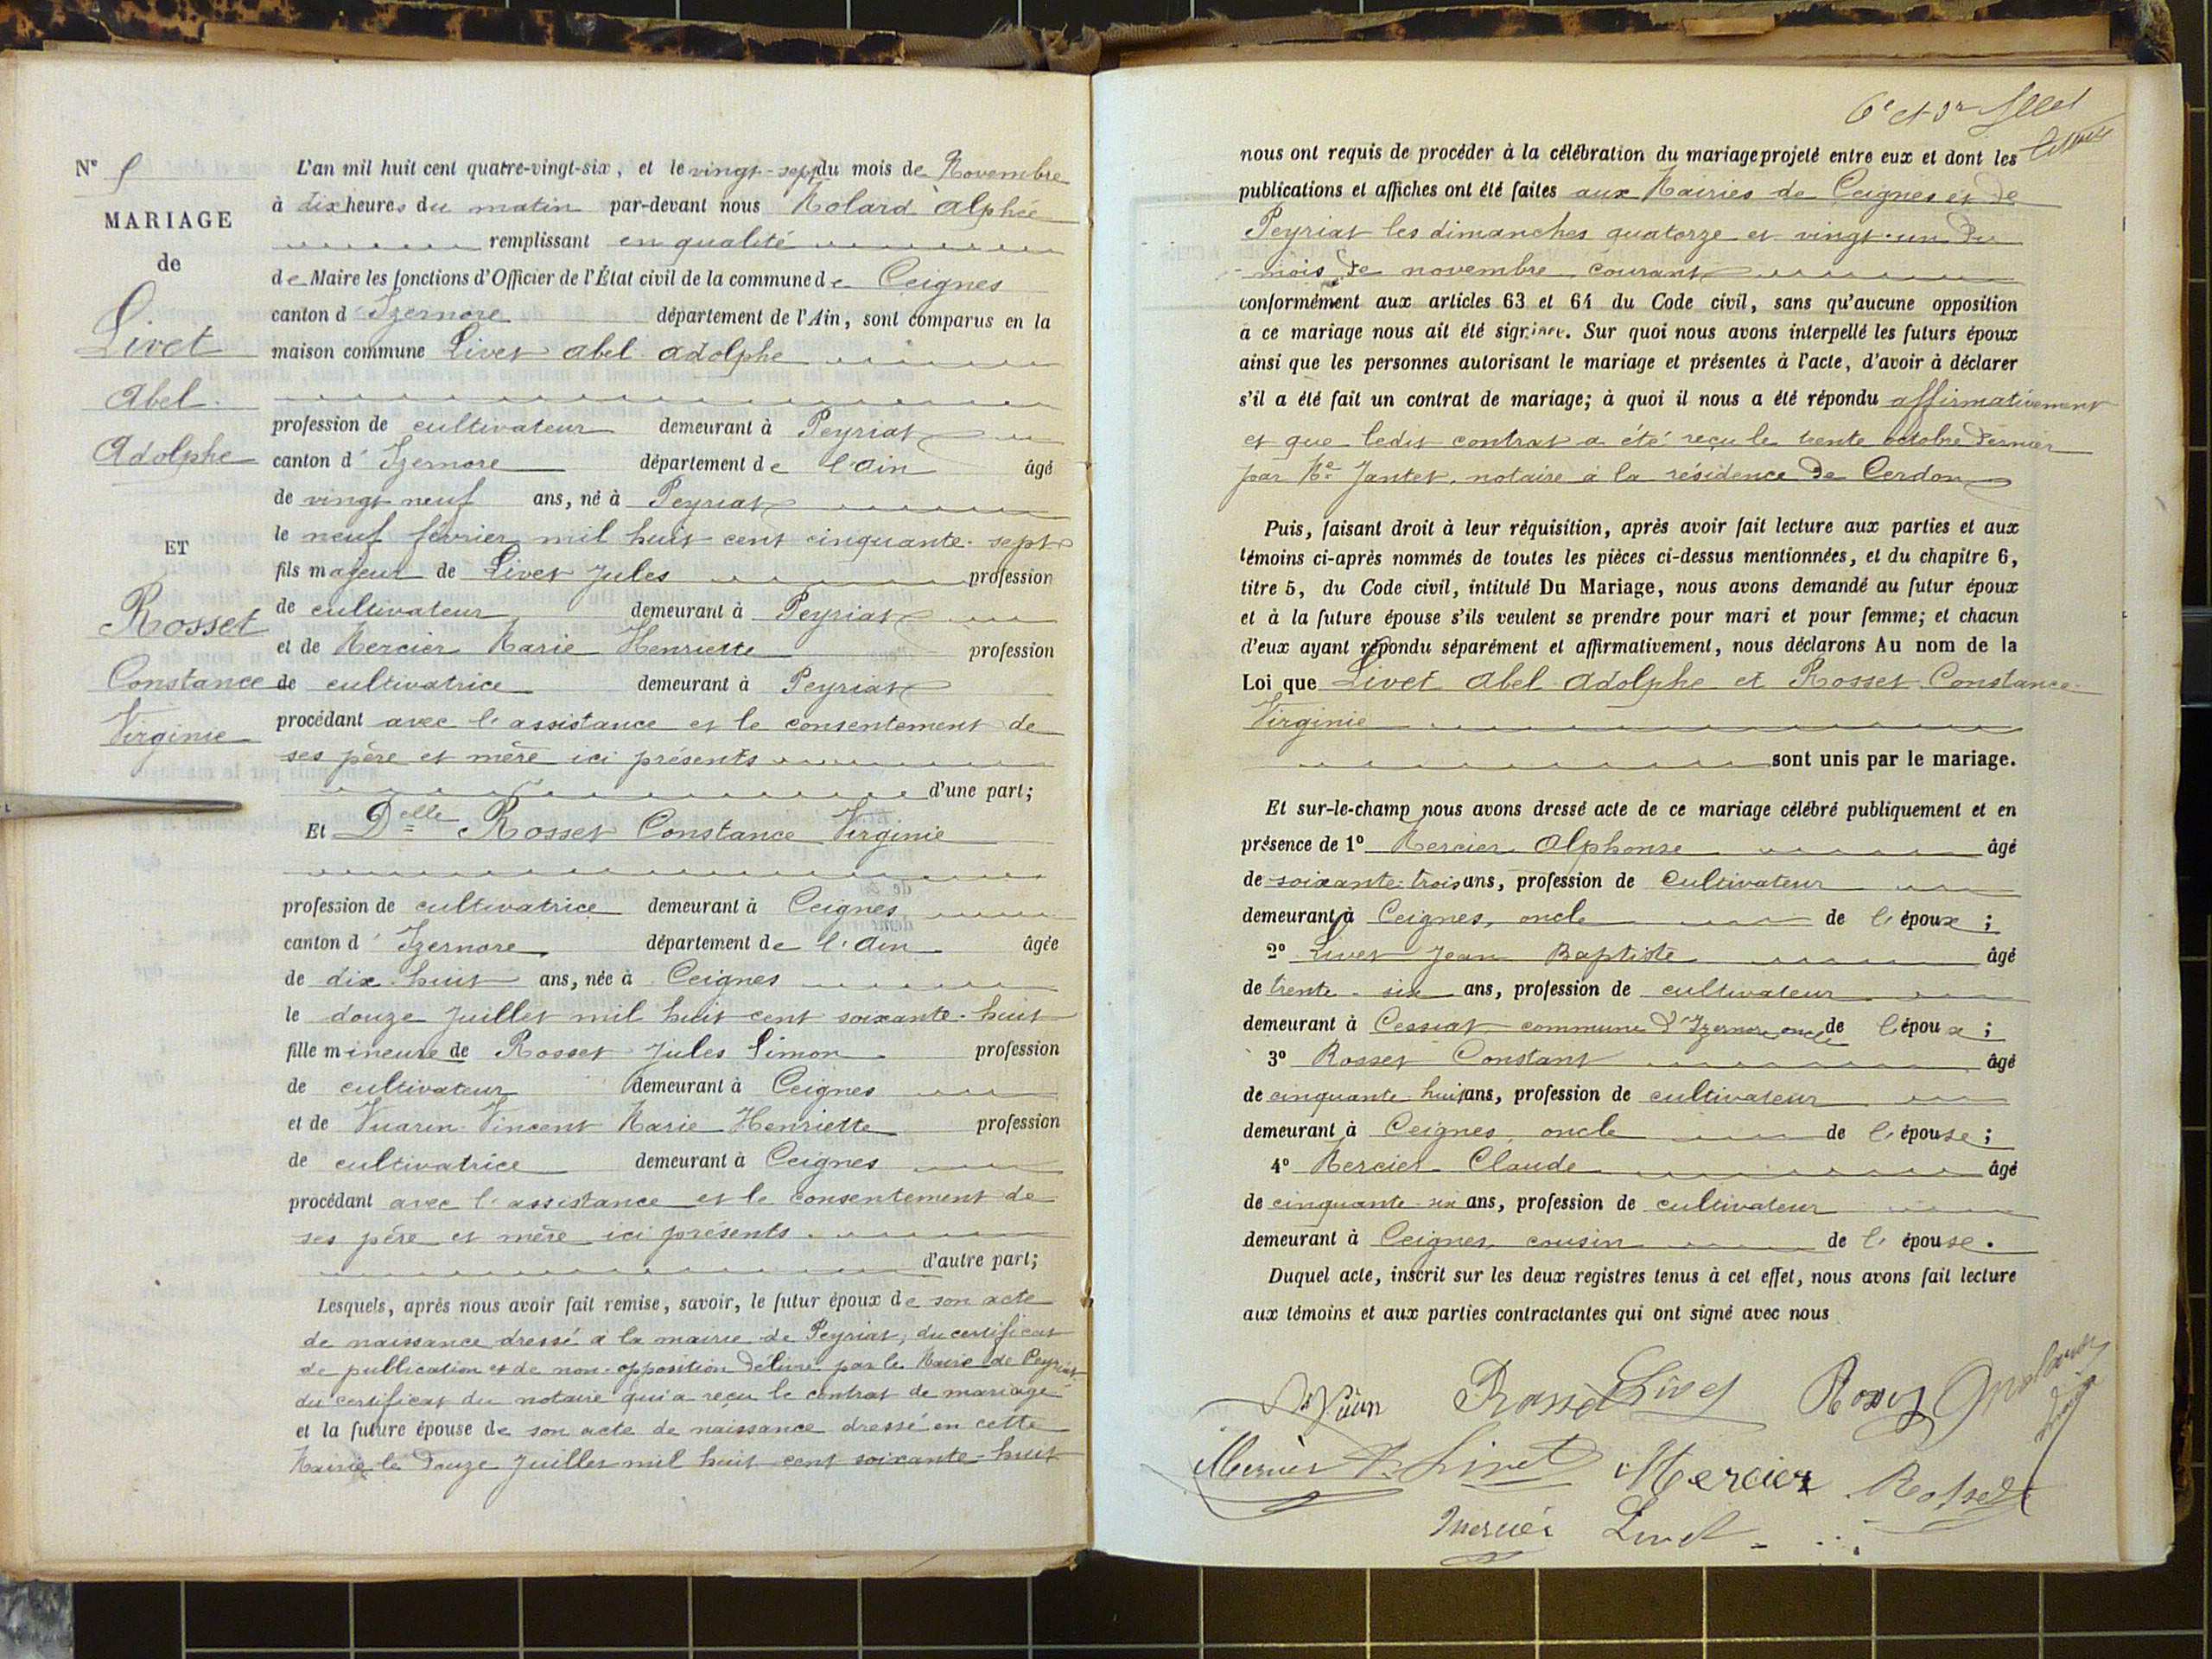 N° 5
MARIAGE
de
Livet
Abel
Adolphe
ET
Rosset
Constance
Virginie
L'an mil huit cent quatre-vingt-six, et le vingt-sept du mois de Novembre
à dix heures du matin par-devant nous Molard Alphée
remplissant en qualité
de Maire les fonctions d'Officier de l'État civil de la commune de Ceignes
canton d'Izernore département de l'Ain, sont comparus en la
maison commune Livet Abel Adolphe
profession de cultivateur demeurant à Peyriat
canton d'Izernore département de l'Ain âgé
de vingt neuf ans, né à Peyriat
le neuf février mil huit cent cinquante-sept
fils majeur de Livet Jules profession
de cultivateur demeurant à Peyriat
et de Mercier Marie Henriette profession
de cultivatrice demeurant à Peyriat
procédant avec l'assistance et le consentement de
ses père et mère ici présents
d'une part;
Et Delle Rosset Constance Virginie
profession de cultivatrice demeurant à Ceignes
canton d'Izernore département de l'Ain âgée
de dix-huit ans, née à Ceignes
le douze Juillet mil huit cent soixante-huit
fille mineure de Rosset Jules Simon profession
de cultivateur demeurant à Ceignes
et de Vuarin Vincent Marie Henriette profession
de cultivatrice demeurant à Ceignes
procédant avec l'assistance et le consentement de
ses père et mère ici présents
d'autre part;
Lesquels, après nous avoir fait remise, savoir, le futur époux de son acte
de naissance dressé à la mairie de Peyriat, du certificat
de publication et de non-opposition délivré par le Maire de Peyriat
du certificat du notaire qui a reçu le contrat de mariage
et la future épouse de son acte de naissance dressé en cette
Mairie le douze Juillet mil huit cent soixante-huit
6e et
nous ont requis de procéder à la célébration du mariage projeté entre eux et dont les
publications et affiches ont été faites aux Mairies de Ceignes et de
Peyriat les dimanches quatorze et vingt-un du
mois de novembre courant
conformément aux articles 63 et 64 du Code civil, sans qu'aucune opposition
à ce mariage nous ait été signifiée. Sur quoi nous avons interpellé les futurs époux
ainsi que les personnes autorisant le mariage et présentes à l'acte, d'avoir à déclarer
s'il a été fait un contrat de mariage; à quoi il nous a été répondu affirmativement
et que ledit contrat a été reçu le trente octobre dernier
par Me Jantet, notaire à la résidence de Cerdon
Puis, faisant droit à leur réquisition, après avoir fait lecture aux parties et aux
témoins ci-après nommés de toutes les pièces ci-dessus mentionnées, et du chapitre 6,
titre 5, du Code civil, intitulé Du Mariage, nous avons demandé au futur époux
et à la future épouse s'ils veulent se prendre pour mari et pour femme; et chacun
d'eux ayant répondu séparément et affirmativement, nous déclarons Au nom de la
Loi que Livet Abel Adolphe et Rosset Constance
Virginie
sont unis par le mariage.
Et sur-le-champ nous avons dressé acte de ce mariage célébré publiquement et en
présence de 1° Mercier Alphonse âgé
de soixante-trois ans, profession de cultivateur
demeurant à Ceignes, oncle de l'époux ;
2° Livet Jean Baptiste âgé
de trente-six ans, profession de cultivateur
demeurant à Cessiat commune d'Izernore oncle de l'époux ;
3° Rosset Constant âgé
de cinquante huit ans, profession de cultivateur
demeurant à Ceignes, oncle de l'épouse ;
4° Mercier Claude âgé
de cinquante-six ans, profession de cultivateur
demeurant à Ceignes, cousin de l'épouse.
Duquel acte, inscrit sur les deux registres tenus à cet effet, nous avons fait lecture
aux témoins et aux parties contractantes qui ont signé avec nous
Rosset Livet
Livet Mercier Rosset
Mercier Livet